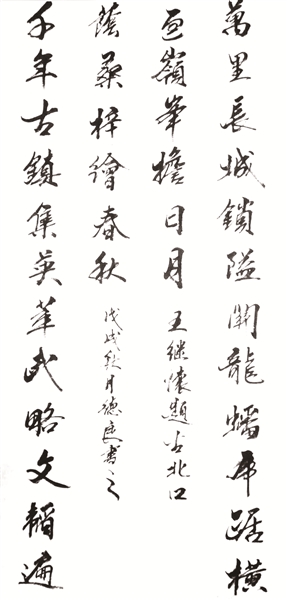 萬里長城鎖隘關龍蟠虎踞橫
亘嶺峯擔日月
王继懷題古北口
千年古鎮集英華武略文韜遍
蔭桑梓繪春秋
戊戌秋月德庭書之